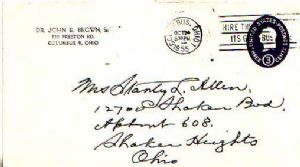 DR. JOHN B. BROWN, Sr.
PRESTON RD.
COLUMBUS 9, OHIO
OHIO
OCT 24
PM
HIRE T
IT'S
UNITED STATES POSTAGE
3
Mrs Stanley L. Allen,
12700 Shaker Bvd.
Aptment 608.
Shaker Heights
Ohio